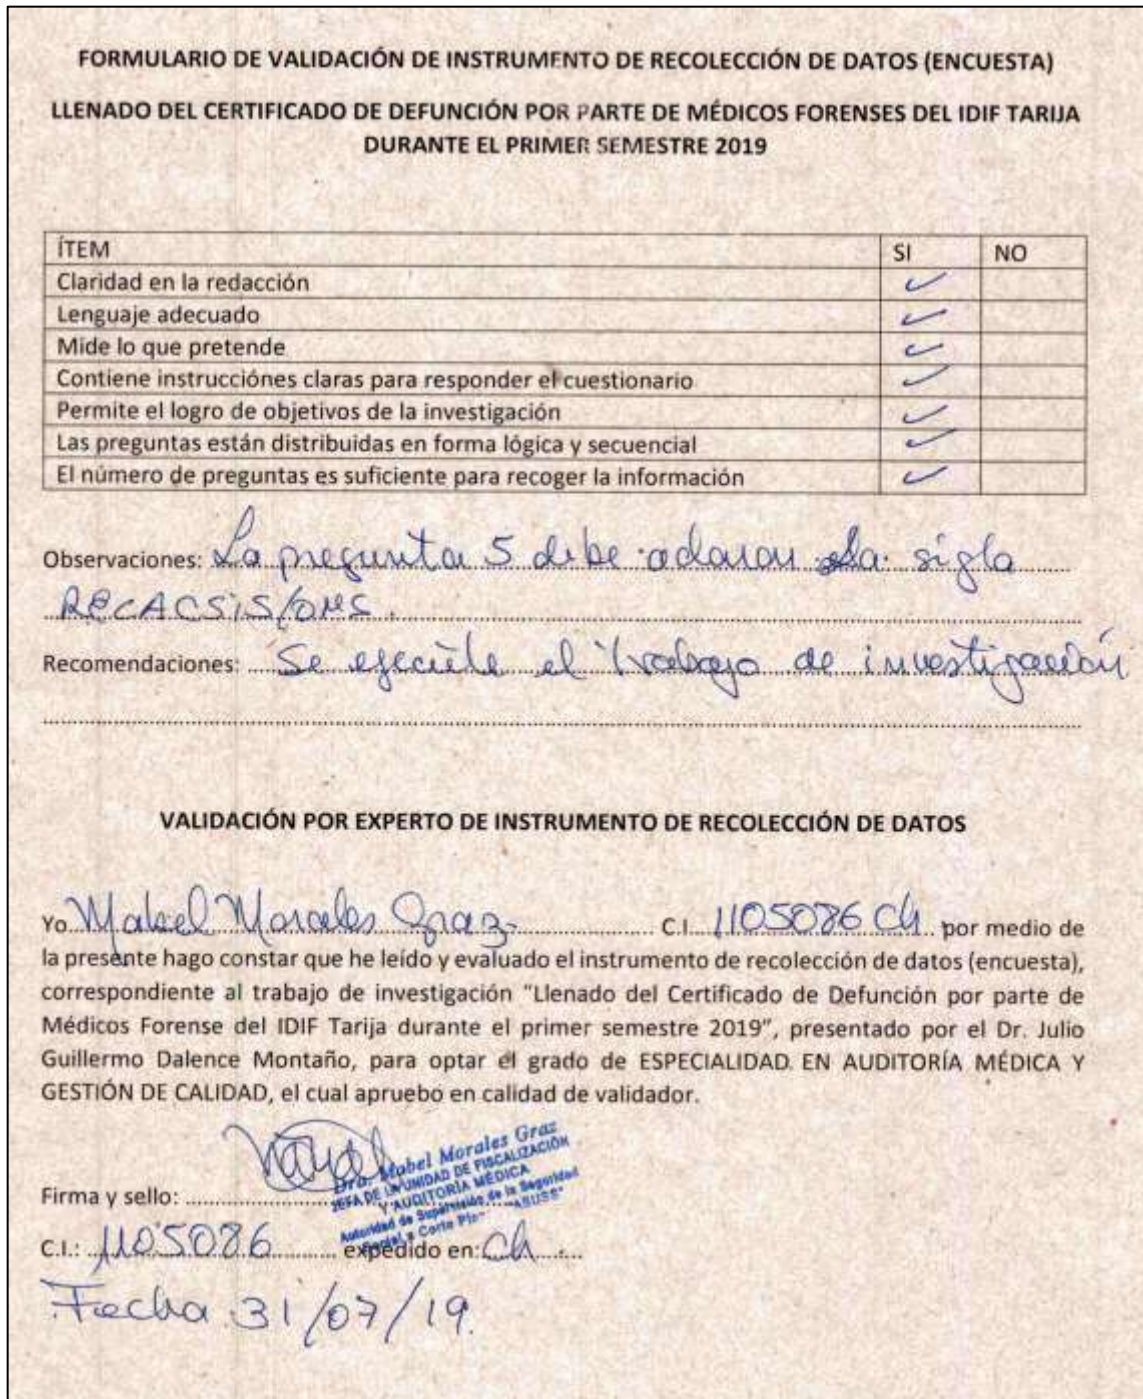 FORMULARIO DE VALIDACIÓN DE INSTRUMENTO DE RECOLECCIÓN DE DATOS (ENCUESTA)
LLENADO DEL CERTIFICADO DE DEFUNCIÓN POR PARTE DE MÉDICOS FORENSES DEL IDIF TARIJA
DURANTE EL PRIMER SEMESTRE 2019
ÍTEM SI NO
Claridad en la redacción ✓
Lenguaje adecuado ✓
Mide lo que pretende ✓
Contiene instrucciónes claras para responder el cuestionario ✓
Permite el logro de objetivos de la investigación ✓
Las preguntas están distribuidas en forma lógica y secuencial ✓
El número de preguntas es suficiente para recoger la información ✓
Observaciones: La pregunta 5 debe aclarar la sigla
RECACSIS/OMS.
Recomendaciones: Se ejecute el trabajo de investigación
VALIDACIÓN POR EXPERTO DE INSTRUMENTO DE RECOLECCIÓN DE DATOS
Yo Mabel Morales Graz C.I. 1105086 Ch por medio de
la presente hago constar que he leído y evaluado el instrumento de recolección de datos (encuesta),
correspondiente al trabajo de investigación "Llenado del Certificado de Defunción por parte de
Médicos Forense del IDIF Tarija durante el primer semestre 2019", presentado por el Dr. Julio
Guillermo Dalence Montaño, para optar el grado de ESPECIALIDAD EN AUDITORÍA MÉDICA Y
GESTIÓN DE CALIDAD, el cual apruebo en calidad de validador.
Dra. Mabel Morales Graz
JEFA DE LA UNIDAD DE FISCALIZACIÓN
Y AUDITORIA MÉDICA
Autoridad de Supervisión de la Seguridad
Social a Corto Plo" "ASUSS"
Firma y sello:
C.I.: 1105086 expedido en: Ch
Fecha 31/07/19.